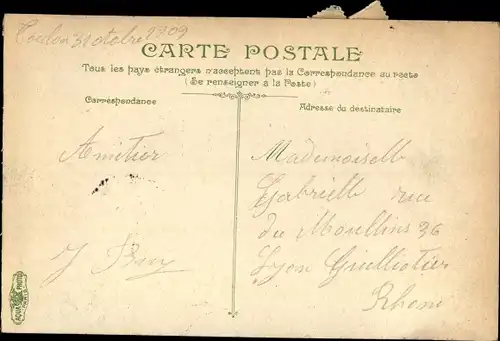 Toulon 31 octobre 1909
CARTE POSTALE
Tous les pays étrangers n'acceptent pas la Correspondance au recto
(Se renseigner à la Poste)
Correspondance
Adresse du destinataire
Amitier
Mademoiselle
Gabrielle rue
du Moullins 36
Lyon
Rhone
AQUA PHOTO